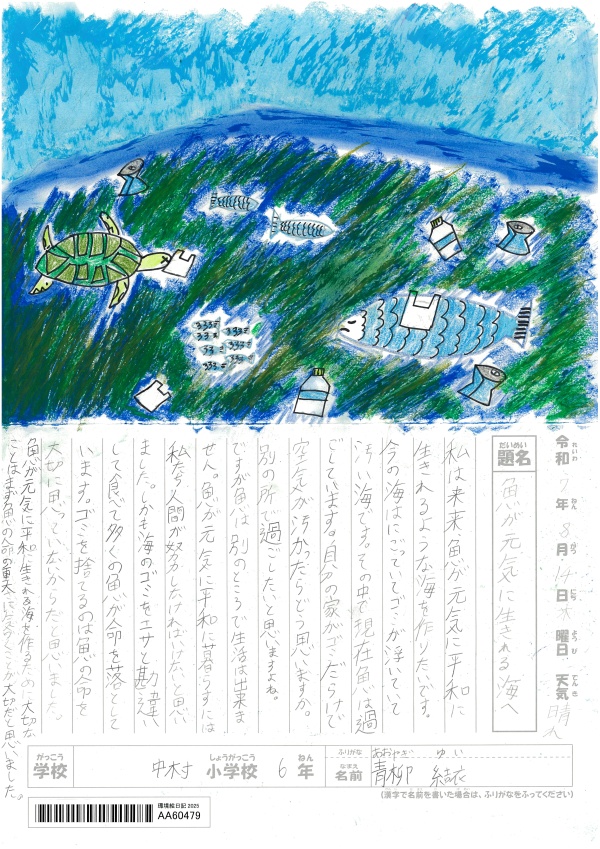 令和7年8月14日木曜日 天気 晴れ
れいわ ねん がつ にち ようび てんき
だいめい
題名
魚が元気に生きれる海へ
私は未来魚が元気に平和に
生きれるような海を作りたいです。
今の海はにごっていてゴミが浮いていて
汚い海です。その中で現在魚は過
ごしています。自分の家がゴミだらけで
空気が汚かったらどう思いますか。
別の所で過ごしたいと思いますよね。
ですが魚は別のところで生活は出来ま
せん。魚が元気に平和に暮らすには
私たち人間が努力しなければいけないと思い
ました。しかも海のゴミをエサと勘違い
して食べて多くの魚が命を落として
います。ゴミを捨てるのは魚の命を
大切に思っていないからだと思いました。
魚が元気に平和に生きれる海を作るために大切な
ことはまず魚の命の重大に気づくことが大切だと思いました。
がっこう
学校
中村 小学校 6年
しょうがっこう ねん
ふりがな あおやぎ ゆい
なまえ
名前 青柳 結衣
(漢字で名前を書いた場合は、ふりがなをふってください)
環境絵日記 2025
AA60479